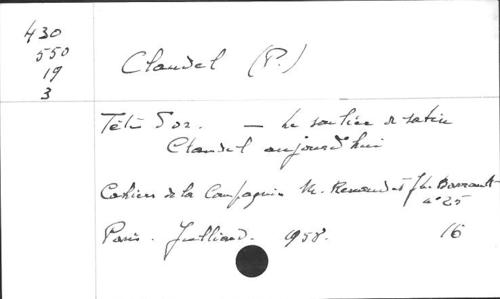 430
550
19
3
Claudel (P.)
Tête d'or. — Le soulier de satin
Claudel aujourd'hui
Cahiers de la Compagnie M. Renaud et J.L. Barrault
n° 25
Paris. Julliard. 1958. 16